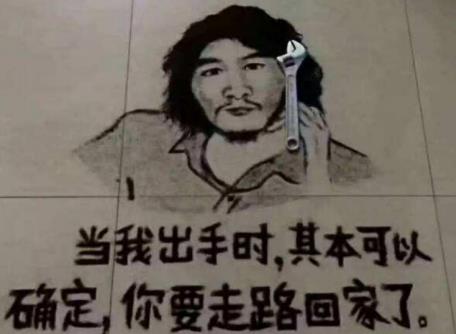 当我出手时,其本可以
确定,你要走路回家了。